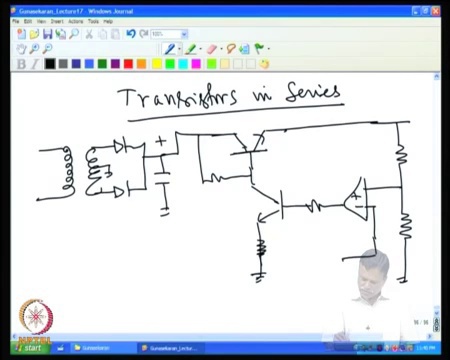 Gunasekaran_Lecture17 - Windows Journal
File Edit View Insert Actions Tools Help
100%
B I
Transistors in Series
+
+
-
NPTEL
start
Gunasekaran
Gunasekaran_Lectu...